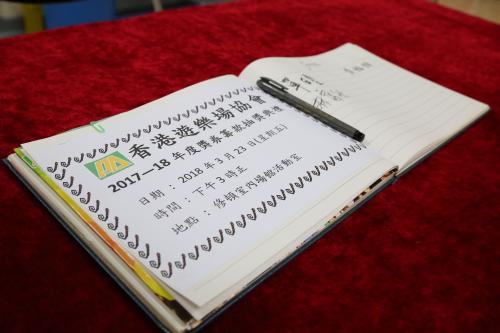 香港遊樂場協會
2017—18 年度獎券籌款抽獎典禮
日期：2018 年 3 月 23 日(星期五)
時間：下午 3 時正
地點：修頓室內場館活動室